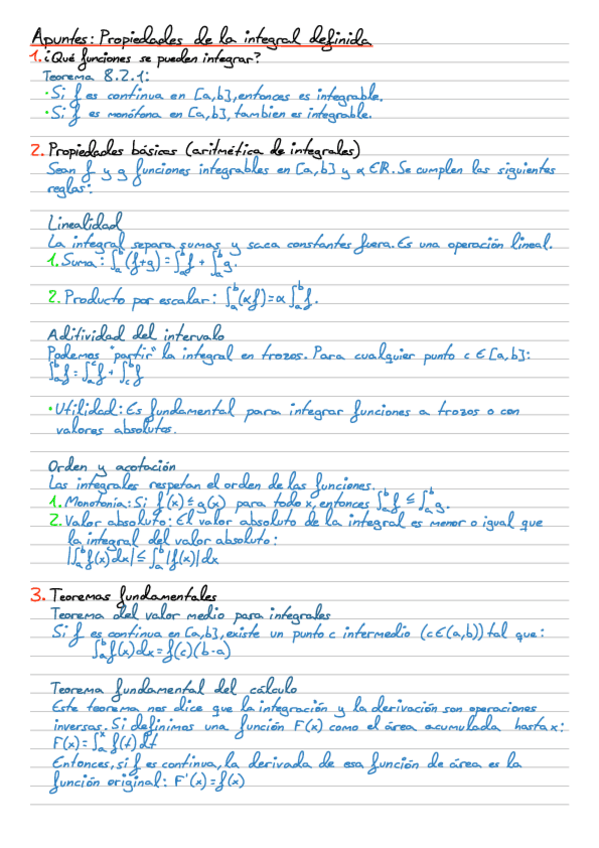 Apuntes: Propiedades de la integral definida
1. ¿Qué funciones se pueden integrar?
Teorema 8.2.1:
· Si f es continua en [a,b], entonces es integrable.
· Si f es monótona en [a,b], tambien es integrable.
2. Propiedades básicas (aritmética de integrales)
Sean f y g funciones integrables en [a,b] y α∈ℝ. Se cumplen las siguientes
reglas:
Linealidad
La integral separa sumas y saca constantes fuera. Es una operación lineal.
1. Suma: ∫_a^b (f+g) = ∫_a^b f + ∫_a^b g.
2. Producto por escalar: ∫_a^b (αf) = α ∫_a^b f.
Aditividad del intervalo
Podemos "partir" la integral en trozos. Para cualquier punto c ∈ [a,b]:
∫_a^b f = ∫_a^c f + ∫_c^b f
· Utilidad: Es fundamental para integrar funciones a trozos o con
valores absolutos.
Orden y acotación
Las integrales respetan el orden de las funciones.
1. Monotonía: Si f(x) ≤ g(x) para todo x, entonces ∫_a^b f ≤ ∫_a^b g.
2. Valor absoluto: El valor absoluto de la integral es menor o igual que
la integral del valor absoluto:
|∫_a^b f(x)dx| ≤ ∫_a^b |f(x)|dx
3. Teoremas fundamentales
Teorema del valor medio para integrales
Si f es continua en [a,b], existe un punto c intermedio (c∈(a,b)) tal que:
∫_a^b f(x)dx = f(c)(b-a)
Teorema fundamental del cálculo
Este teorema nos dice que la integración y la derivación son operaciones
inversas. Si definimos una función F(x) como el área acumulada hasta x:
F(x) = ∫_a^x f(t)dt
Entonces, si f es continua, la derivada de esa función de área es la
función original: F'(x) = f(x)